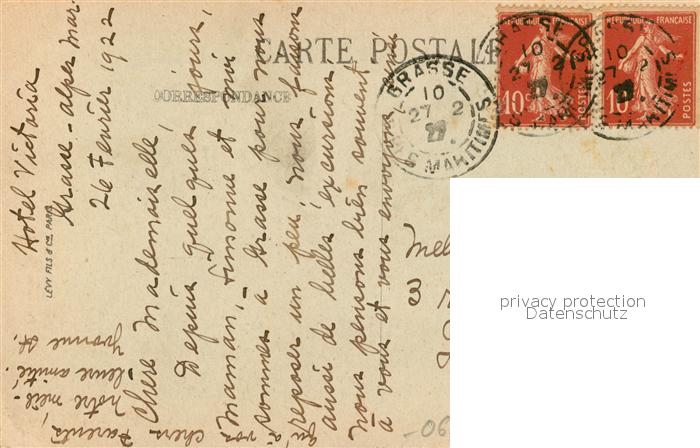 CARTE POSTALE
CORRESPONDANCE
LEVY FILS & Cie PARIS
Hotel Victoria
Grasse - Alpes Mar.
26 Fevrier 1922
Chère Mademoiselle,
Depuis quelques jours,
maman, Simonne et moi
sommes a Grasse pour nous
reposer un peu, nous faisons
aussi de belles excursions
nous pensons bien souvent
à vous et vous envoyons, ainsi
qu'à vos chers
Parents,
notre meil-
leure amitié.
Yvonne H.
REPUBLIQUE FRANÇAISE
10 c
POSTES
REPUBLIQUE FRANÇAISE
10 c
POSTES
GRASSE
10
27 2
22
ALPES MARITIMES
Mel
3
privacy protection
Datenschutz
-06